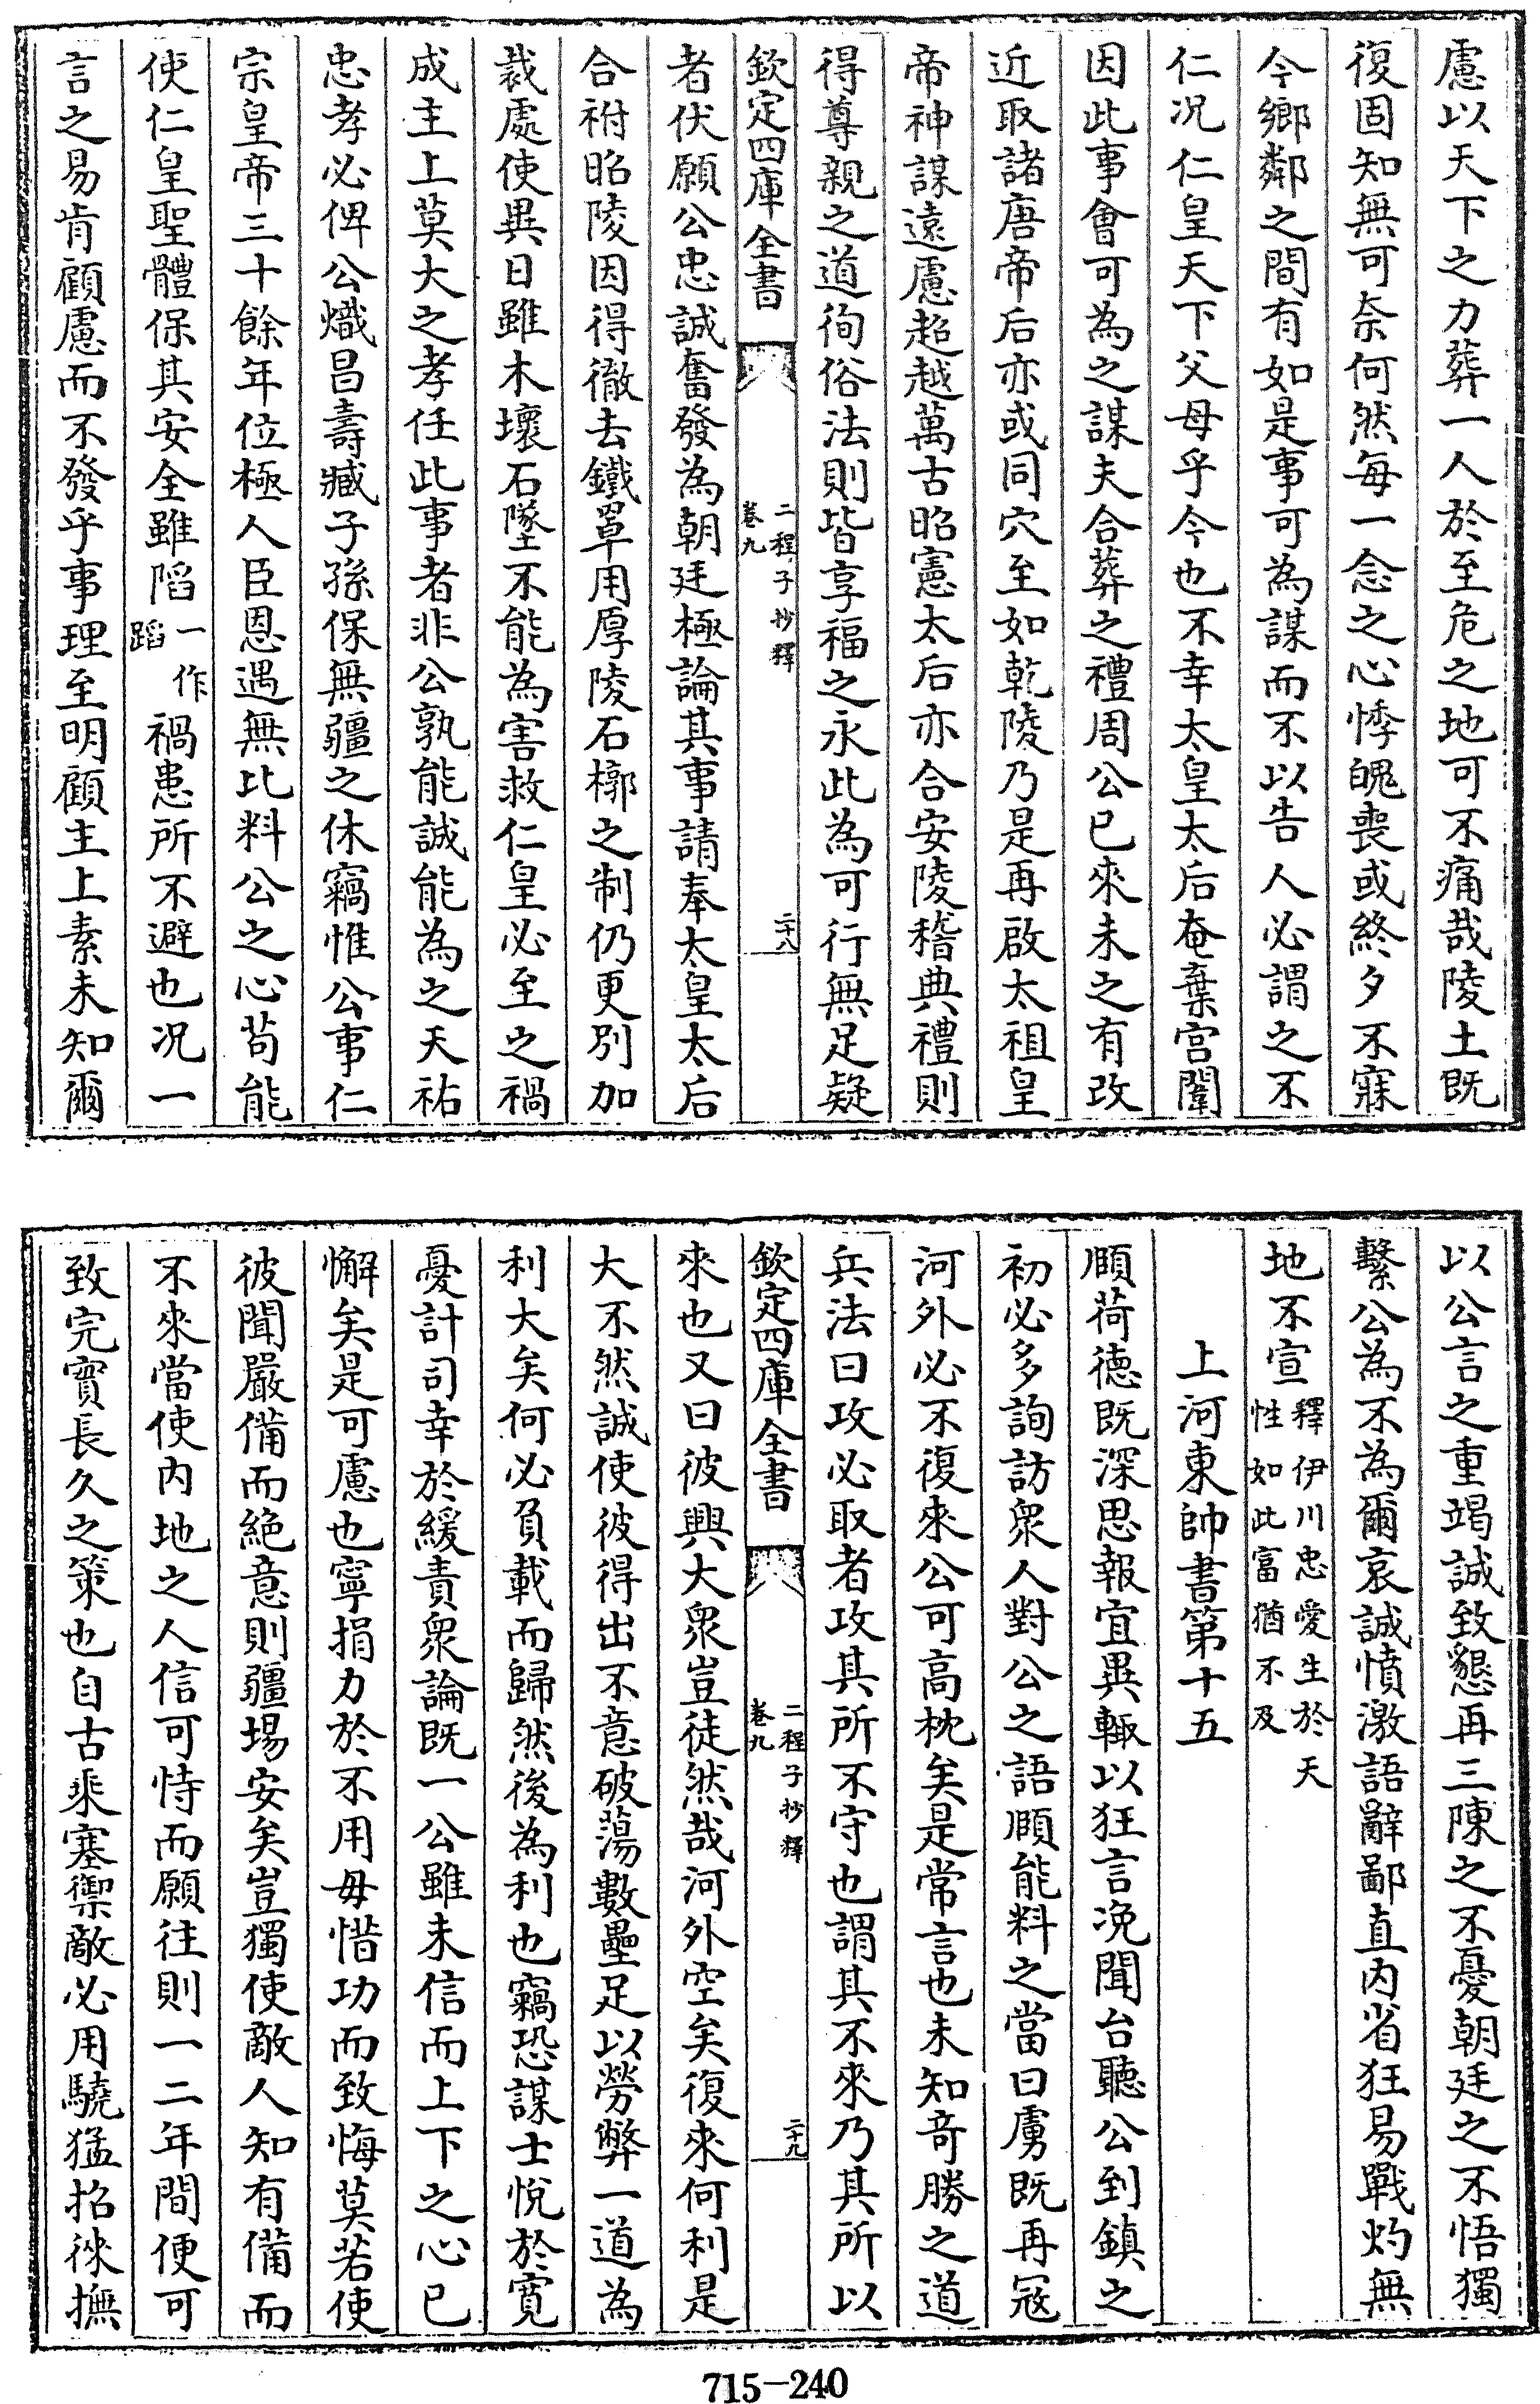 慮以天下之力葬一人於至危之地可不痛哉陵土既
復固知無可奈何然每一念之心悸魄喪或終夕不寐
今鄉鄰之間有如是事可為謀而不以告人必謂之不
仁况仁皇天下父母乎今也不幸太皇太后奄棄宫闈
因此事會可為之謀夫合葬之禮周公已來未之有改
近取諸唐帝后亦或同穴至如乾陵乃是再啟太祖皇
帝神謀遠慮超越萬古昭憲太后亦合安陵稽典禮則
得尊親之道徇俗法則皆享福之永此為可行無足疑
欽定四庫全書
二程子抄釋
卷九
二十八
者伏願公忠誠奮發為朝廷極論其事請奉太皇太后
合祔昭陵因得徹去鐵罩用厚陵石槨之制仍更别加
裁處使異日雖木壞石墜不能為害救仁皇必至之禍
成主上莫大之孝任此事者非公孰能誠能為之天祐
忠孝必俾公熾昌壽臧子孫保無疆之休竊惟公事仁
宗皇帝三十餘年位極人臣恩遇無比料公之心苟能
使仁皇聖體保其安全雖䧟一作蹈禍患所不避也况一
言之易肯顧慮而不發乎事理至明顧主上素未知爾
以公言之重竭誠致懇再三陳之不憂朝廷之不悟獨
繫公為不為爾哀誠憤激語辭鄙直内省狂易戰灼無
地不宣釋伊川忠愛生於天性如此富猶不及
上河東帥書第十五
頤荷德既深思報宜異輙以狂言凂聞台聽公到鎮之
初必多詢訪衆人對公之語頤能料之當曰虜既再冦
河外必不復來公可高枕矣是常言也未知奇勝之道
兵法曰攻必取者攻其所不守也謂其不來乃其所以
欽定四庫全書
二程子抄釋
卷九
二十九
來也又曰彼興大衆豈徒然哉河外空矣復來何利是
大不然誠使彼得出不意破蕩數壘足以勞弊一道為
利大矣何必負載而歸然後為利也竊恐謀士悦於寛
憂計司幸於緩責衆論既一公雖未信而上下之心已
懈矣是可慮也寧捐力於不用毋惜功而致悔莫若使
彼聞嚴備而絶意則疆埸安矣豈獨使敵人知有備而
不來當使内地之人信可恃而願往則一二年間便可
致完實長久之策也自古乘塞禦敵必用驍猛招徠撫
715-240